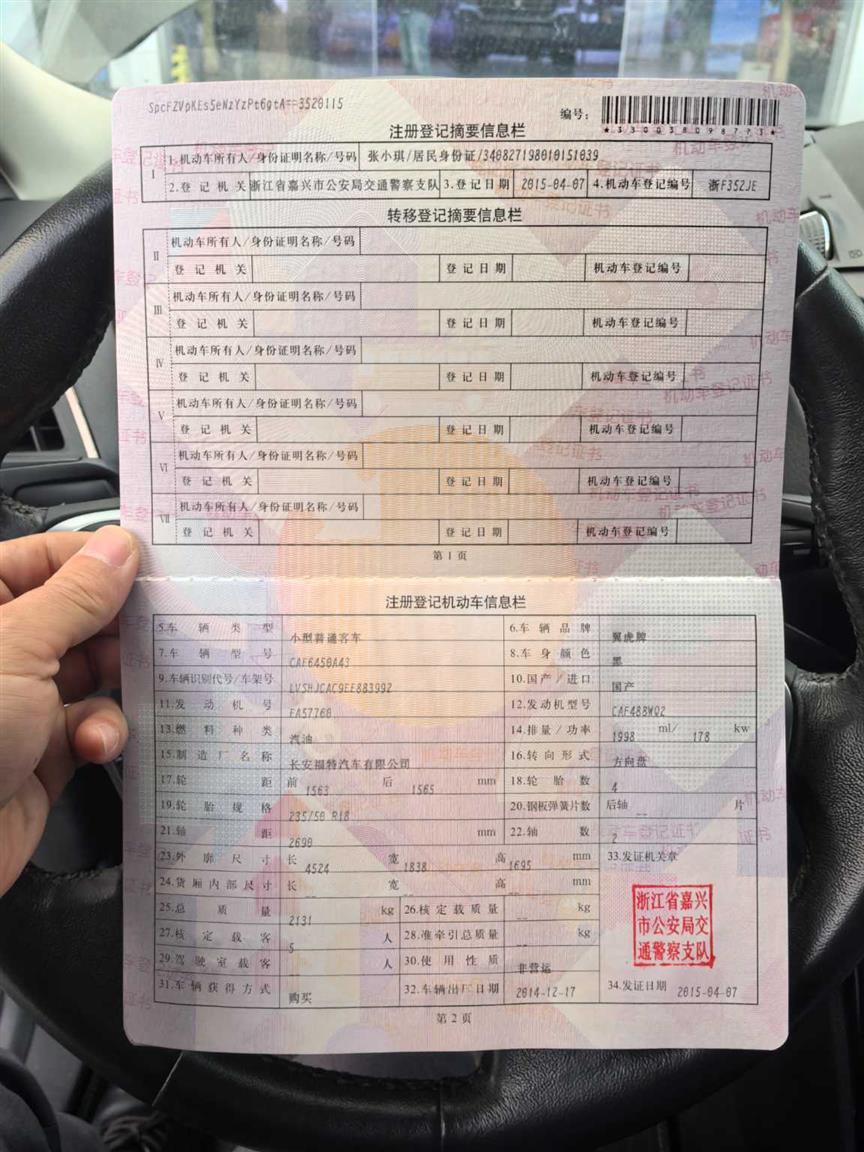 SpcFZVpKEs5eNzYzPt6gtA==3520115
编号:
*330038098773*
注册登记摘要信息栏
I 1.机动车所有人/身份证明名称/号码 张小琪/居民身份证/340827198010151039
2.登记机关 浙江省嘉兴市公安局交通警察支队 3.登记日期 2015-04-07 4.机动车登记编号 浙F352JE
转移登记摘要信息栏
II 机动车所有人/身份证明名称/号码
登记机关 登记日期 机动车登记编号
III 机动车所有人/身份证明名称/号码
登记机关 登记日期 机动车登记编号
IV 机动车所有人/身份证明名称/号码
登记机关 登记日期 机动车登记编号
V 机动车所有人/身份证明名称/号码
登记机关 登记日期 机动车登记编号
VI 机动车所有人/身份证明名称/号码
登记机关 登记日期 机动车登记编号
VII 机动车所有人/身份证明名称/号码
登记机关 登记日期 机动车登记编号
第1页
注册登记机动车信息栏
5.车辆类型 小型普通客车 6.车辆品牌 翼虎牌
7.车辆型号 CAF6450A43 8.车身颜色 黑
9.车辆识别代号/车架号 LVSHJCAC9EE883992 10.国产/进口 国产
11.发动机号 EA57760 12.发动机型号 CAF488WQ2
13.燃料种类 汽油 14.排量/功率 1998 ml/ 178 kw
15.制造厂名称 长安福特汽车有限公司 16.转向形式 方向盘
17.轮距 前 1563 后 1565 mm 18.轮胎数 4
19.轮胎规格 235/50 R18 20.钢板弹簧片数 后轴 -- 片
21.轴距 2690 mm 22.轴数 2
23.外廓尺寸 长 4524 宽 1838 高 1695 mm 33.发证机关章
24.货厢内部尺寸 长 -- 宽 -- 高 -- mm
25.总质量 2131 kg 26.核定载质量 -- kg
27.核定载客 5 人 28.准牵引总质量 -- kg
29.驾驶室载客 -- 人 30.使用性质 非营运
31.车辆获得方式 购买 32.车辆出厂日期 2014-12-17 34.发证日期 2015-04-07
浙江省嘉兴
市公安局交
通警察支队
第2页